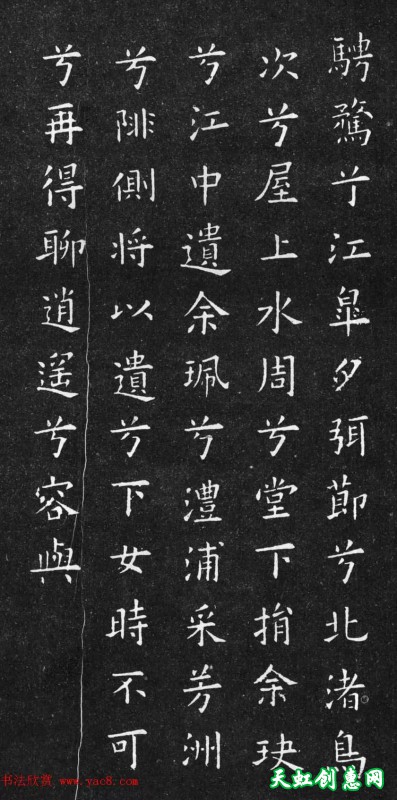 騁騖兮江皐夕弭節兮北渚鳥
次兮屋上水周兮堂下捐余玦
兮江中遺余珮兮澧浦采芳洲
兮陫側將以遺兮下女時不可
兮再得聊逍遙兮容與
书法欣赏 www.yac8.com
天虹创意网